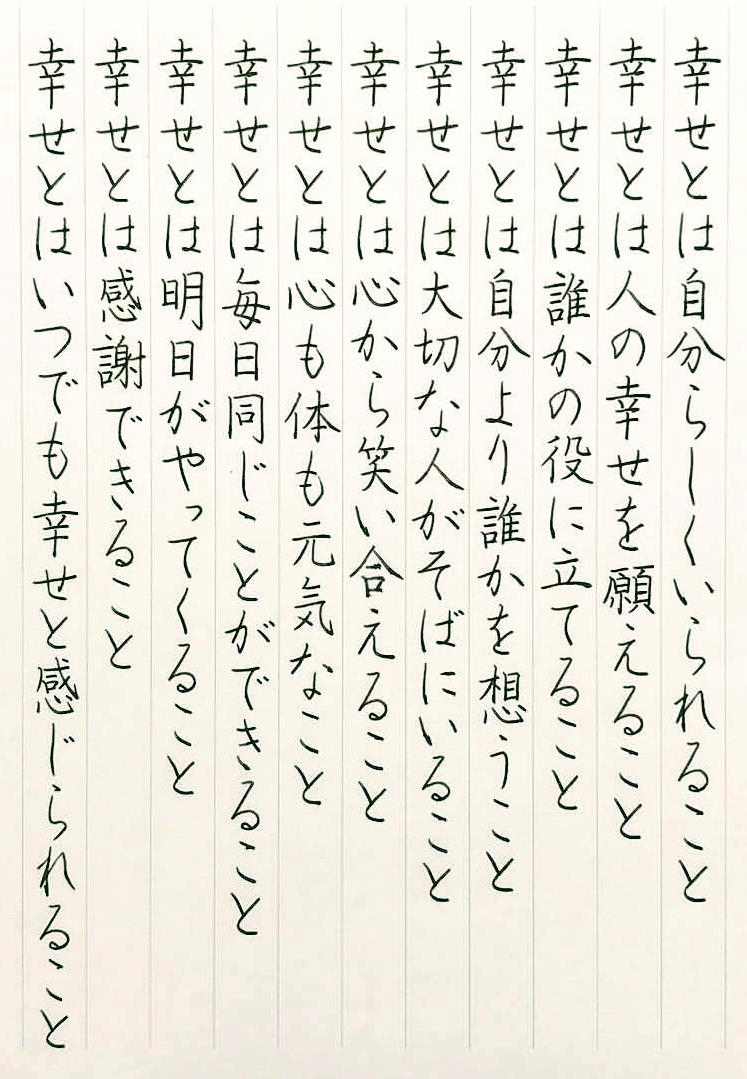 幸せとは自分らしくいられること
幸せとは人の幸せを願えること
幸せとは誰かの役に立てること
幸せとは自分より誰かを想うこと
幸せとは大切な人がそばにいること
幸せとは心から笑い合えること
幸せとは心も体も元気なこと
幸せとは毎日同じことができること
幸せとは明日がやってくること
幸せとは感謝できること
幸せとはいつでも幸せと感じられること